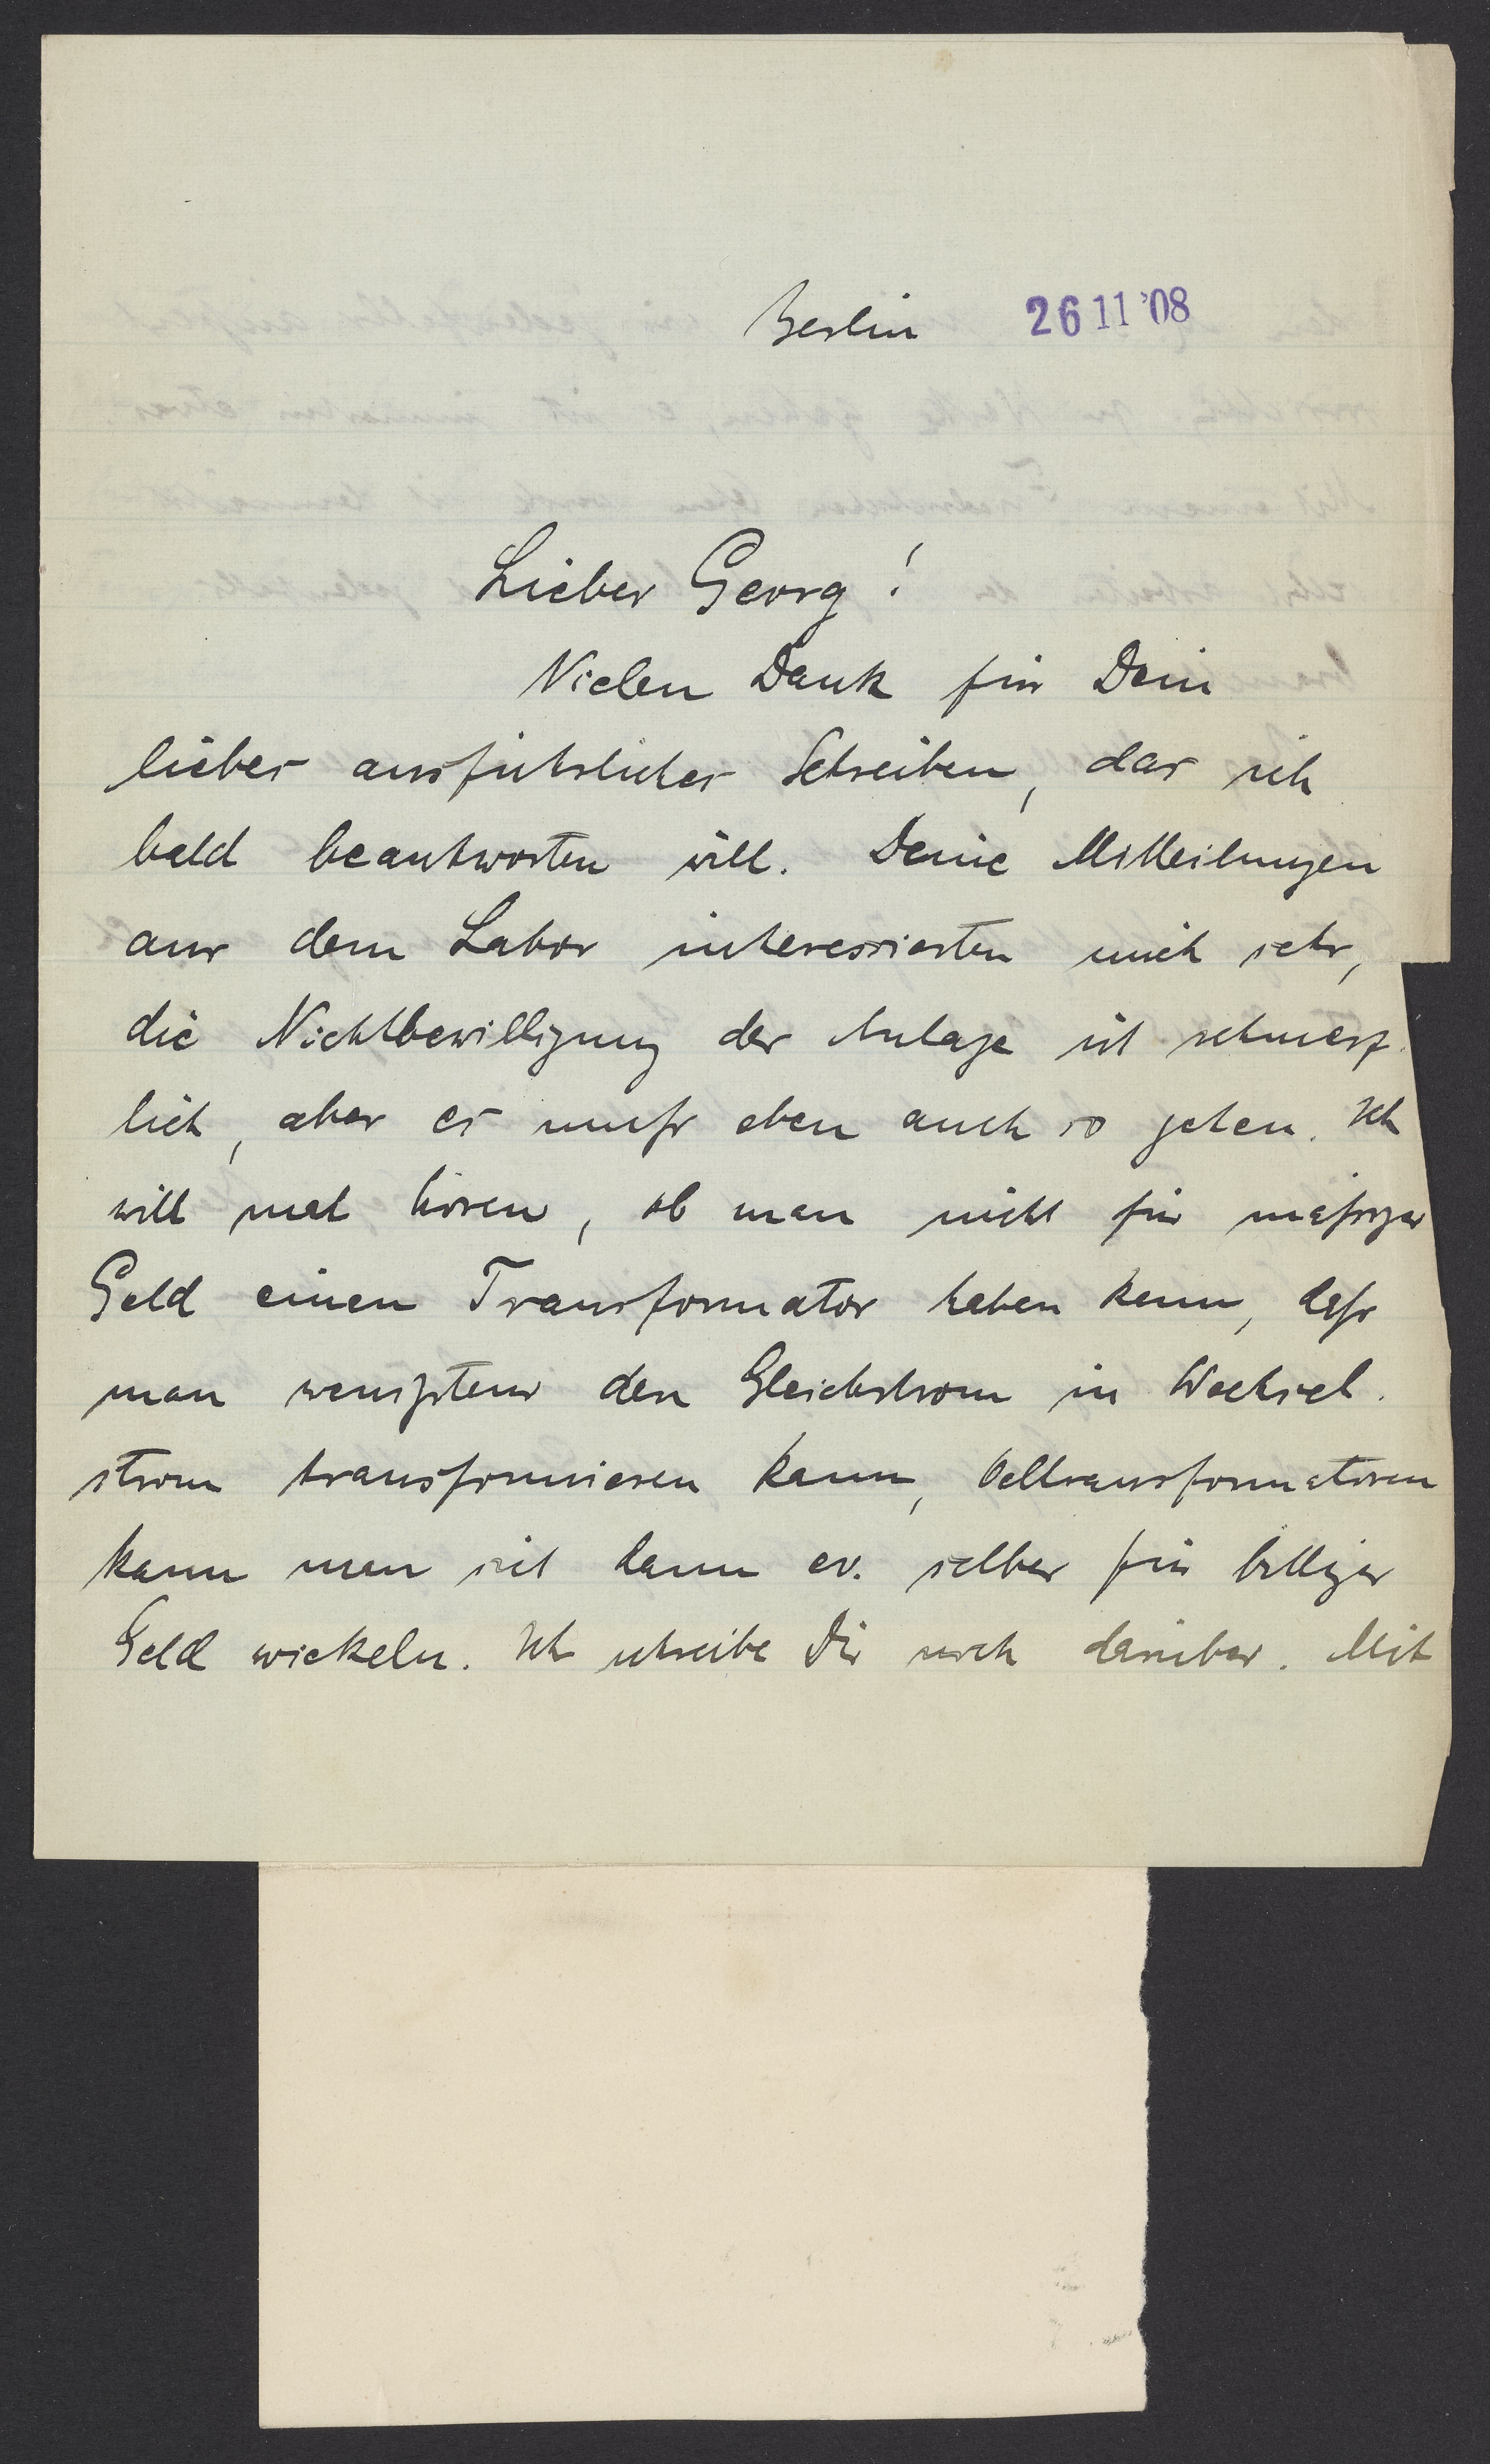 Berlin 26 11 '08
Lieber Georg!
Vielen Dank für Dein
liebes ausführliches Schreiben, das ich
bald beantworten will. Deine Mitteilungen
aus dem Labor interessierten mich sehr,
die Nichtbewilligung der Anlage ist schmerz-
lich, aber es muss eben auch so gehen. Ich
will mal hören, ob man nicht für mässiges
Geld einen Transformator haben kann, dass
man wenigstens den Gleichstrom in Wechsel-
strom transformieren kann, Oeltransformatoren
kann man sich dann ev. selber für billiges
Geld wickeln. Ich schreibe Dir noch darüber. Mit